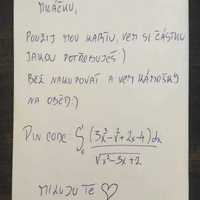 MILÁČKU,
POUŽIJ MOU KARTU, VEM SI ČÁSTKU
JAKOU POTŘEBUJEŠ:)
BĚŽ NAKUPOVAT A VEM KÁMOŠKY
NA OBĚD:)
PIN CODE: ∫₀¹ (3x³-x²+2x-4)dx / √(x²-3x+2)
MILUJU TĚ ♡